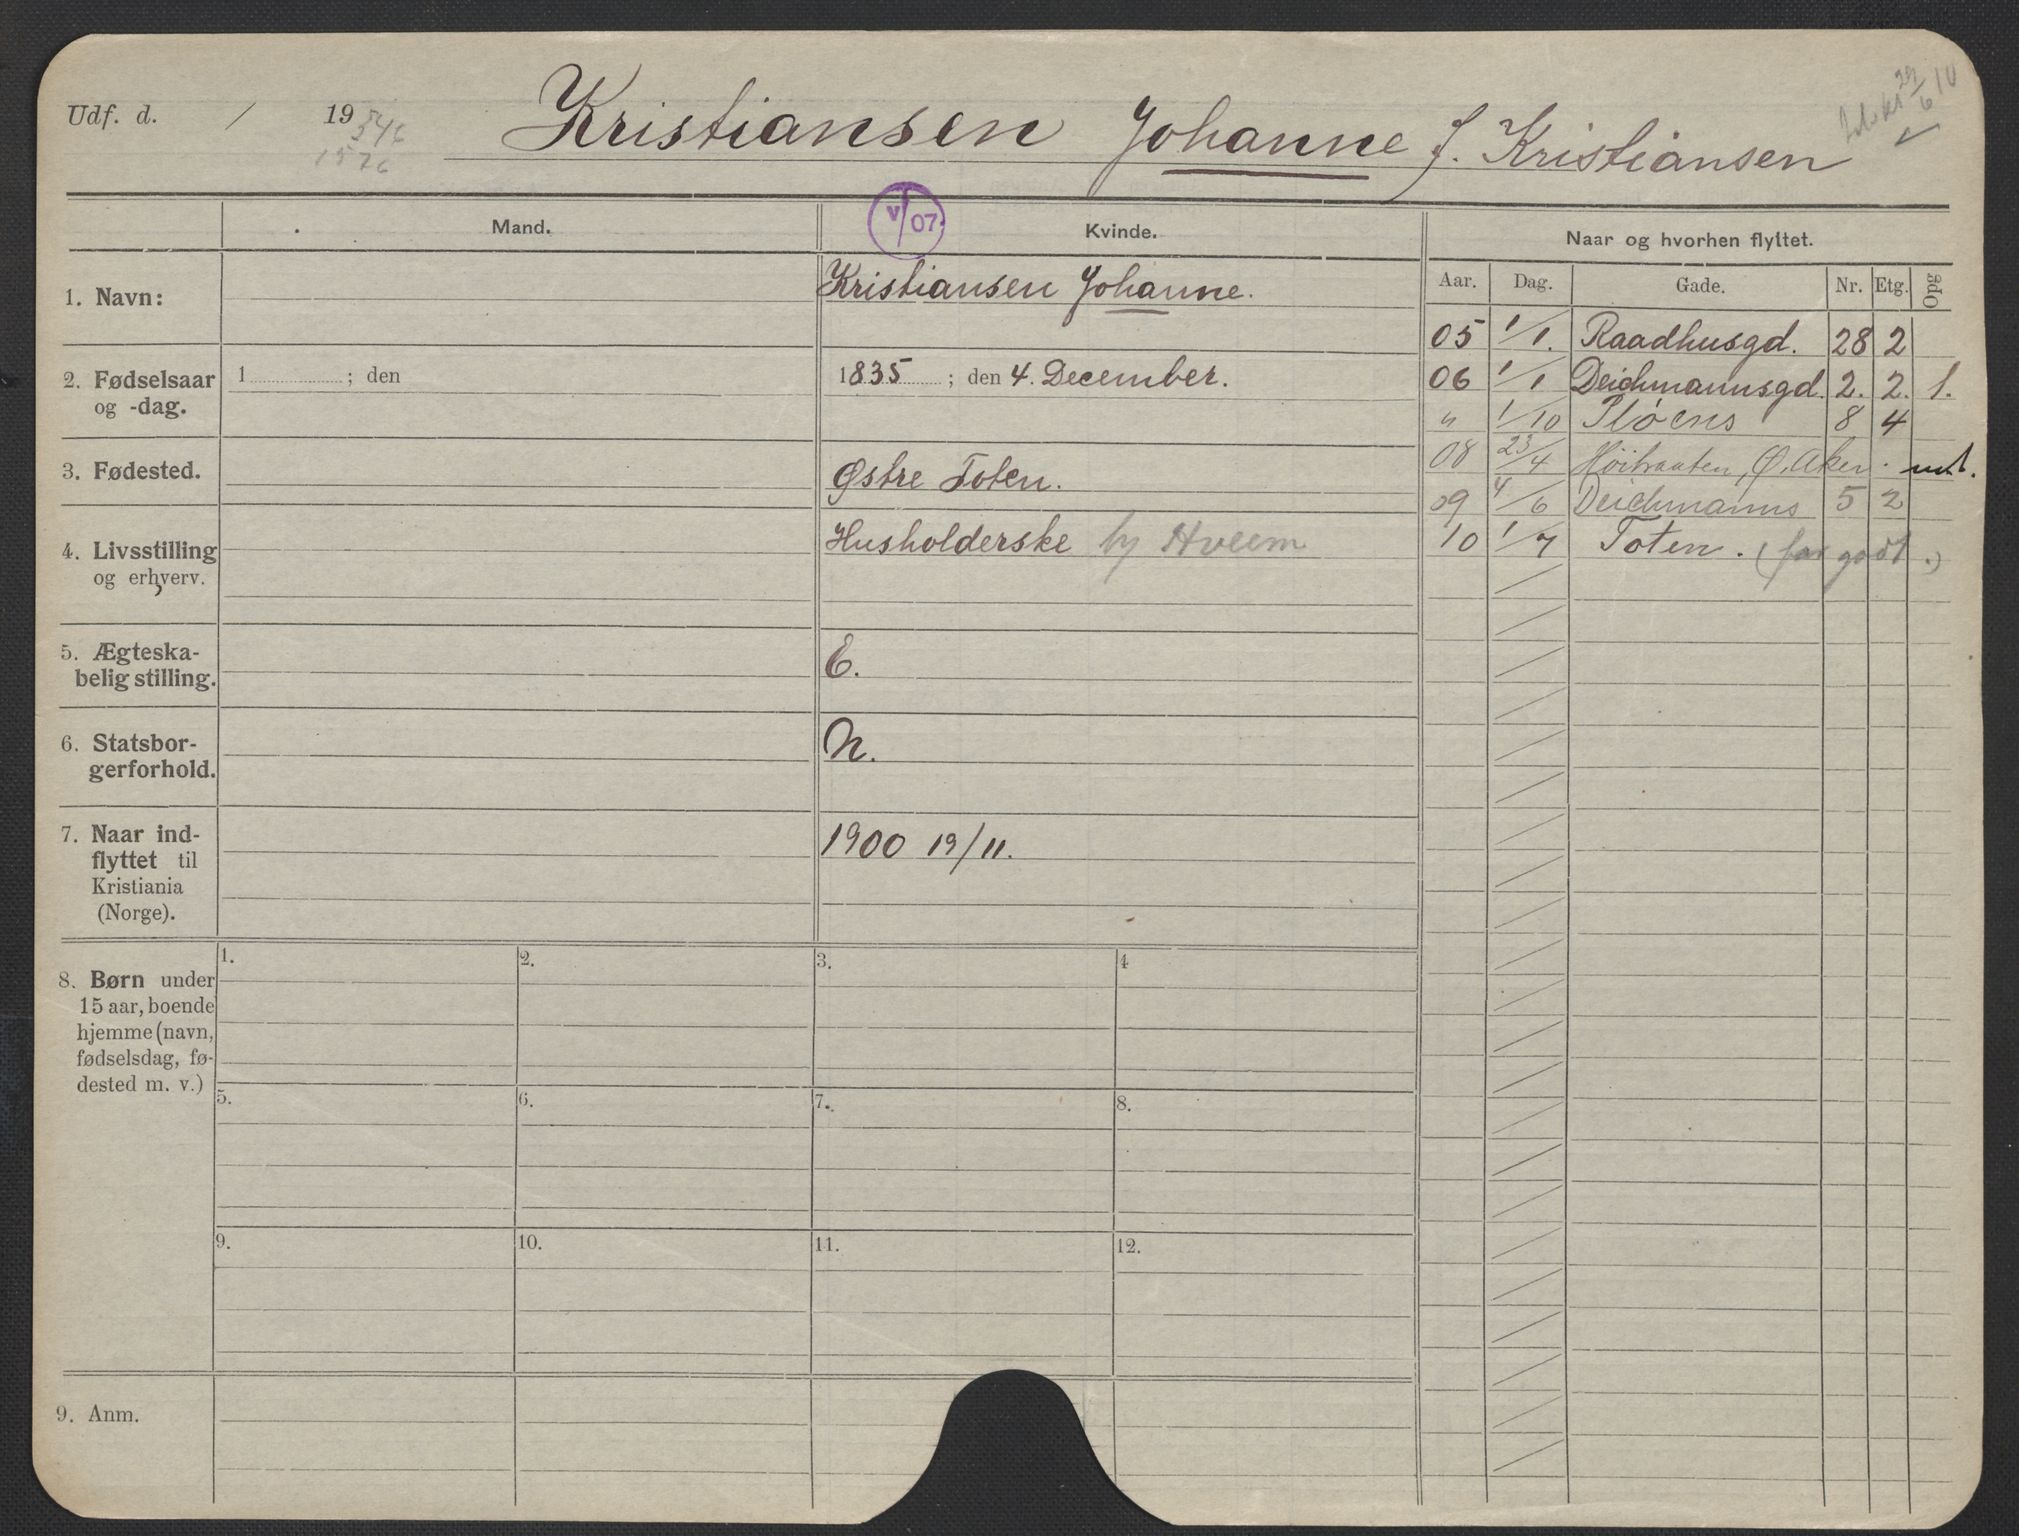 Udf. d. / 19
Kristiansen Johanne J. Kristiansen
29/6 10
546
1576
Mand.
V/07.
Kvinde.
Naar og hvorhen flyttet.
Aar. Dag. Gade. Nr. Etg. Opg
1. Navn:
Kristiansen Johanne.
2. Fødselsaar og -dag.
1 ; den
1835 ; den 4. December.
3. Fødested.
Østre Toten.
4. Livsstilling og erhverv.
Husholderske hj Hveem
5. Ægteska-
belig stilling.
E.
6. Statsbor-
gerforhold.
N.
7. Naar ind-
flyttet til
Kristiania
(Norge).
1900 19/11.
05 1/1. Raadhusgd. 28 2
06 1/1 Deichmannsgd. 2. 2. 1.
" 1/10 Pløens 8 4
08 23/4 Høibraaten, Ø. Aker. ut.
09 4/6 Deichmanns 5 2
10 1/7 Toten. (for godt.)
8. Børn under
15 aar, boende
hjemme (navn,
fødselsdag, fø-
dested m. v.)
1. 2. 3. 4
5. 6. 7. 8.
9. 10. 11. 12.
9. Anm.